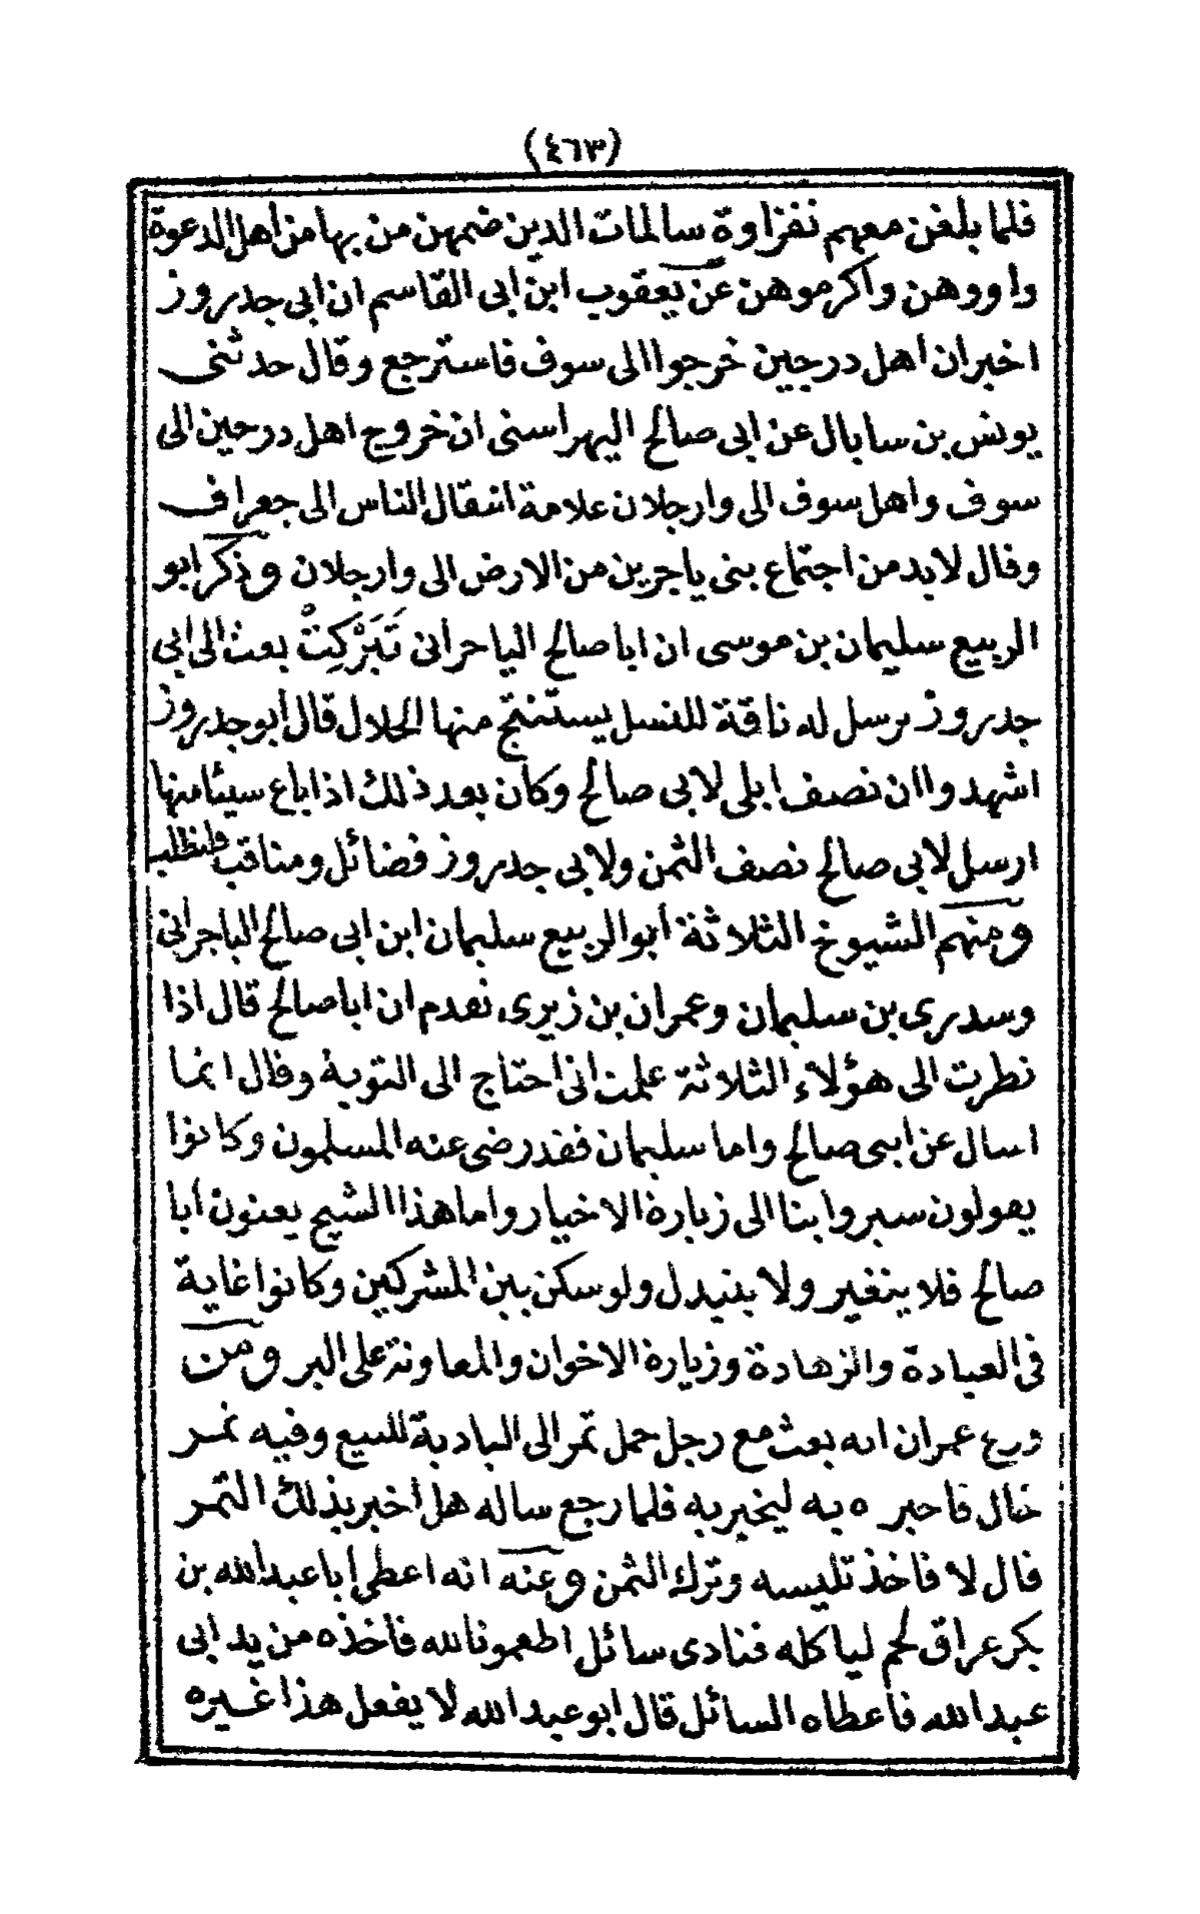 (٤٦٣)
فلما بلغن معهم نفزاوة سالمات الدين ضمهن من بها من اهل الدعوة
واووهن واكرموهن عن يعقوب ابن ابى القاسم ان ابى جدروز
اخبر ان اهل درجين خرجوا الى سوف فاسترجع وقال حدثنى
يونس بن سابال عن ابى صالح اليهراسنى ان خروج اهل درجين الى
سوف واهل سوف الى وارجلان علامة انتقال الناس الى جعراف
وقال لابد من اجتماع بنى ياجرين من الارض الى وارجلان وذكر ابو
الربيع سليمان بن موسى ان ابا صالح الياجرانى تَبَرْكِتْ بعث الى ابى
جدروز يرسل له ناقة للنسل يستنتج منها الحلال قال ابو جدروز
اشهدوا ان نصف ابلى لابى صالح وكان بعد ذلك اذا باع سيئا منها
ارسل لابى صالح نصف الثمن ولابى جدروز فضائل ومناقب فلتطلب
ومنهم الشيوخ الثلاثة أبو الربيع سليمان ابن ابى صالح الياجرانى
وسدرى بن سليمان وعمران بن زيرى تقدم ان ابا صالح قال اذا
نظرت الى هؤلاء الثلاثة علمت انى احتاج الى التوبة وقال انما
اسال عن ابى صالح واما سليمان فقد رضى عنه المسلمون وكانوا
يقولون سيروا بنا الى زيارة الاخيار واما هذا الشيخ يعنون أبا
صالح فلا يتغير ولا يتبدل ولو سكن بين المشركين وكانوا غاية
فى العبادة والزهادة وزيارة الاخوان والمعاونة على البر ومن
ورع عمران انه بعث مع رجل حمل تمر الى البادية للبيع وفيه تمر
خال فاخبره به ليخبر به فلما رجع ساله هل أخبر بذلك التمر
قال لا فاخذ تليسه وترك الثمن وعنه انه اعطى أبا عبد الله بن
بكر عراق لحم لياكله فنادى سائل اطعمونا لله فأخذه من يد ابى
عبد الله فأعطاه السائل قال ابو عبد الله لا يفعل هذا غيره